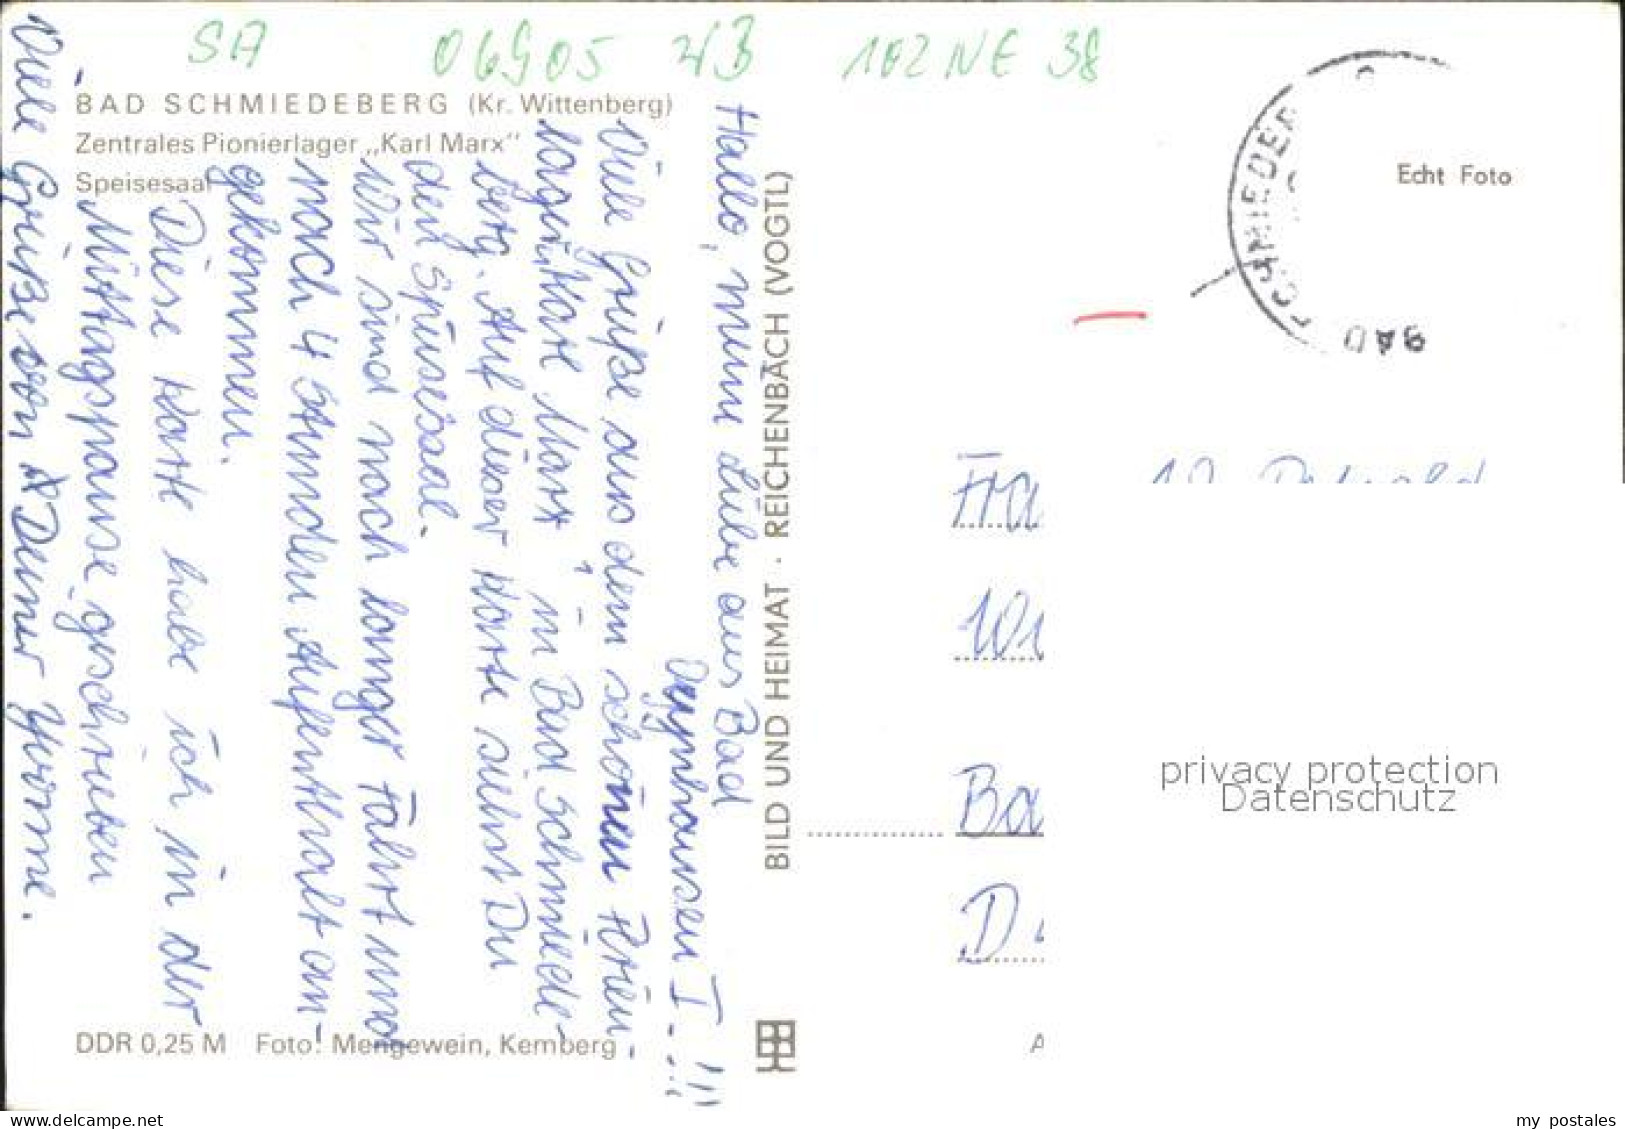 SA 06905 102 NE 38
BAD SCHMIEDEBERG (Kr. Wittenberg)
Zentrales Pionierlager „Karl Marx"
Speisesaal
Hallo, meine Liebe aus Bad
Oeynhausen I..!!!
Viele Grüße aus dem schönen Ferien-
lager „Karl Marx" in Bad Schmiede-
berg. Auf dieser Karte siehst Du
den Speisesaal.
Wir sind nach langer Fahrt und
nach 4 Stunden Aufenthalt an-
gekommen.
Diese Karte habe ich in der
Mittagspause geschrieben
Viele Grüße von Deiner Yvonne.
DDR 0,25 M Foto: Mengewein, Kemberg
BILD UND HEIMAT · REICHENBACH (VOGTL)
Echt Foto
BAD SCHMIEDEB
Fra
Wi
Ba
D
privacy protection
Datenschutz
www.delcampe.net
my_postales